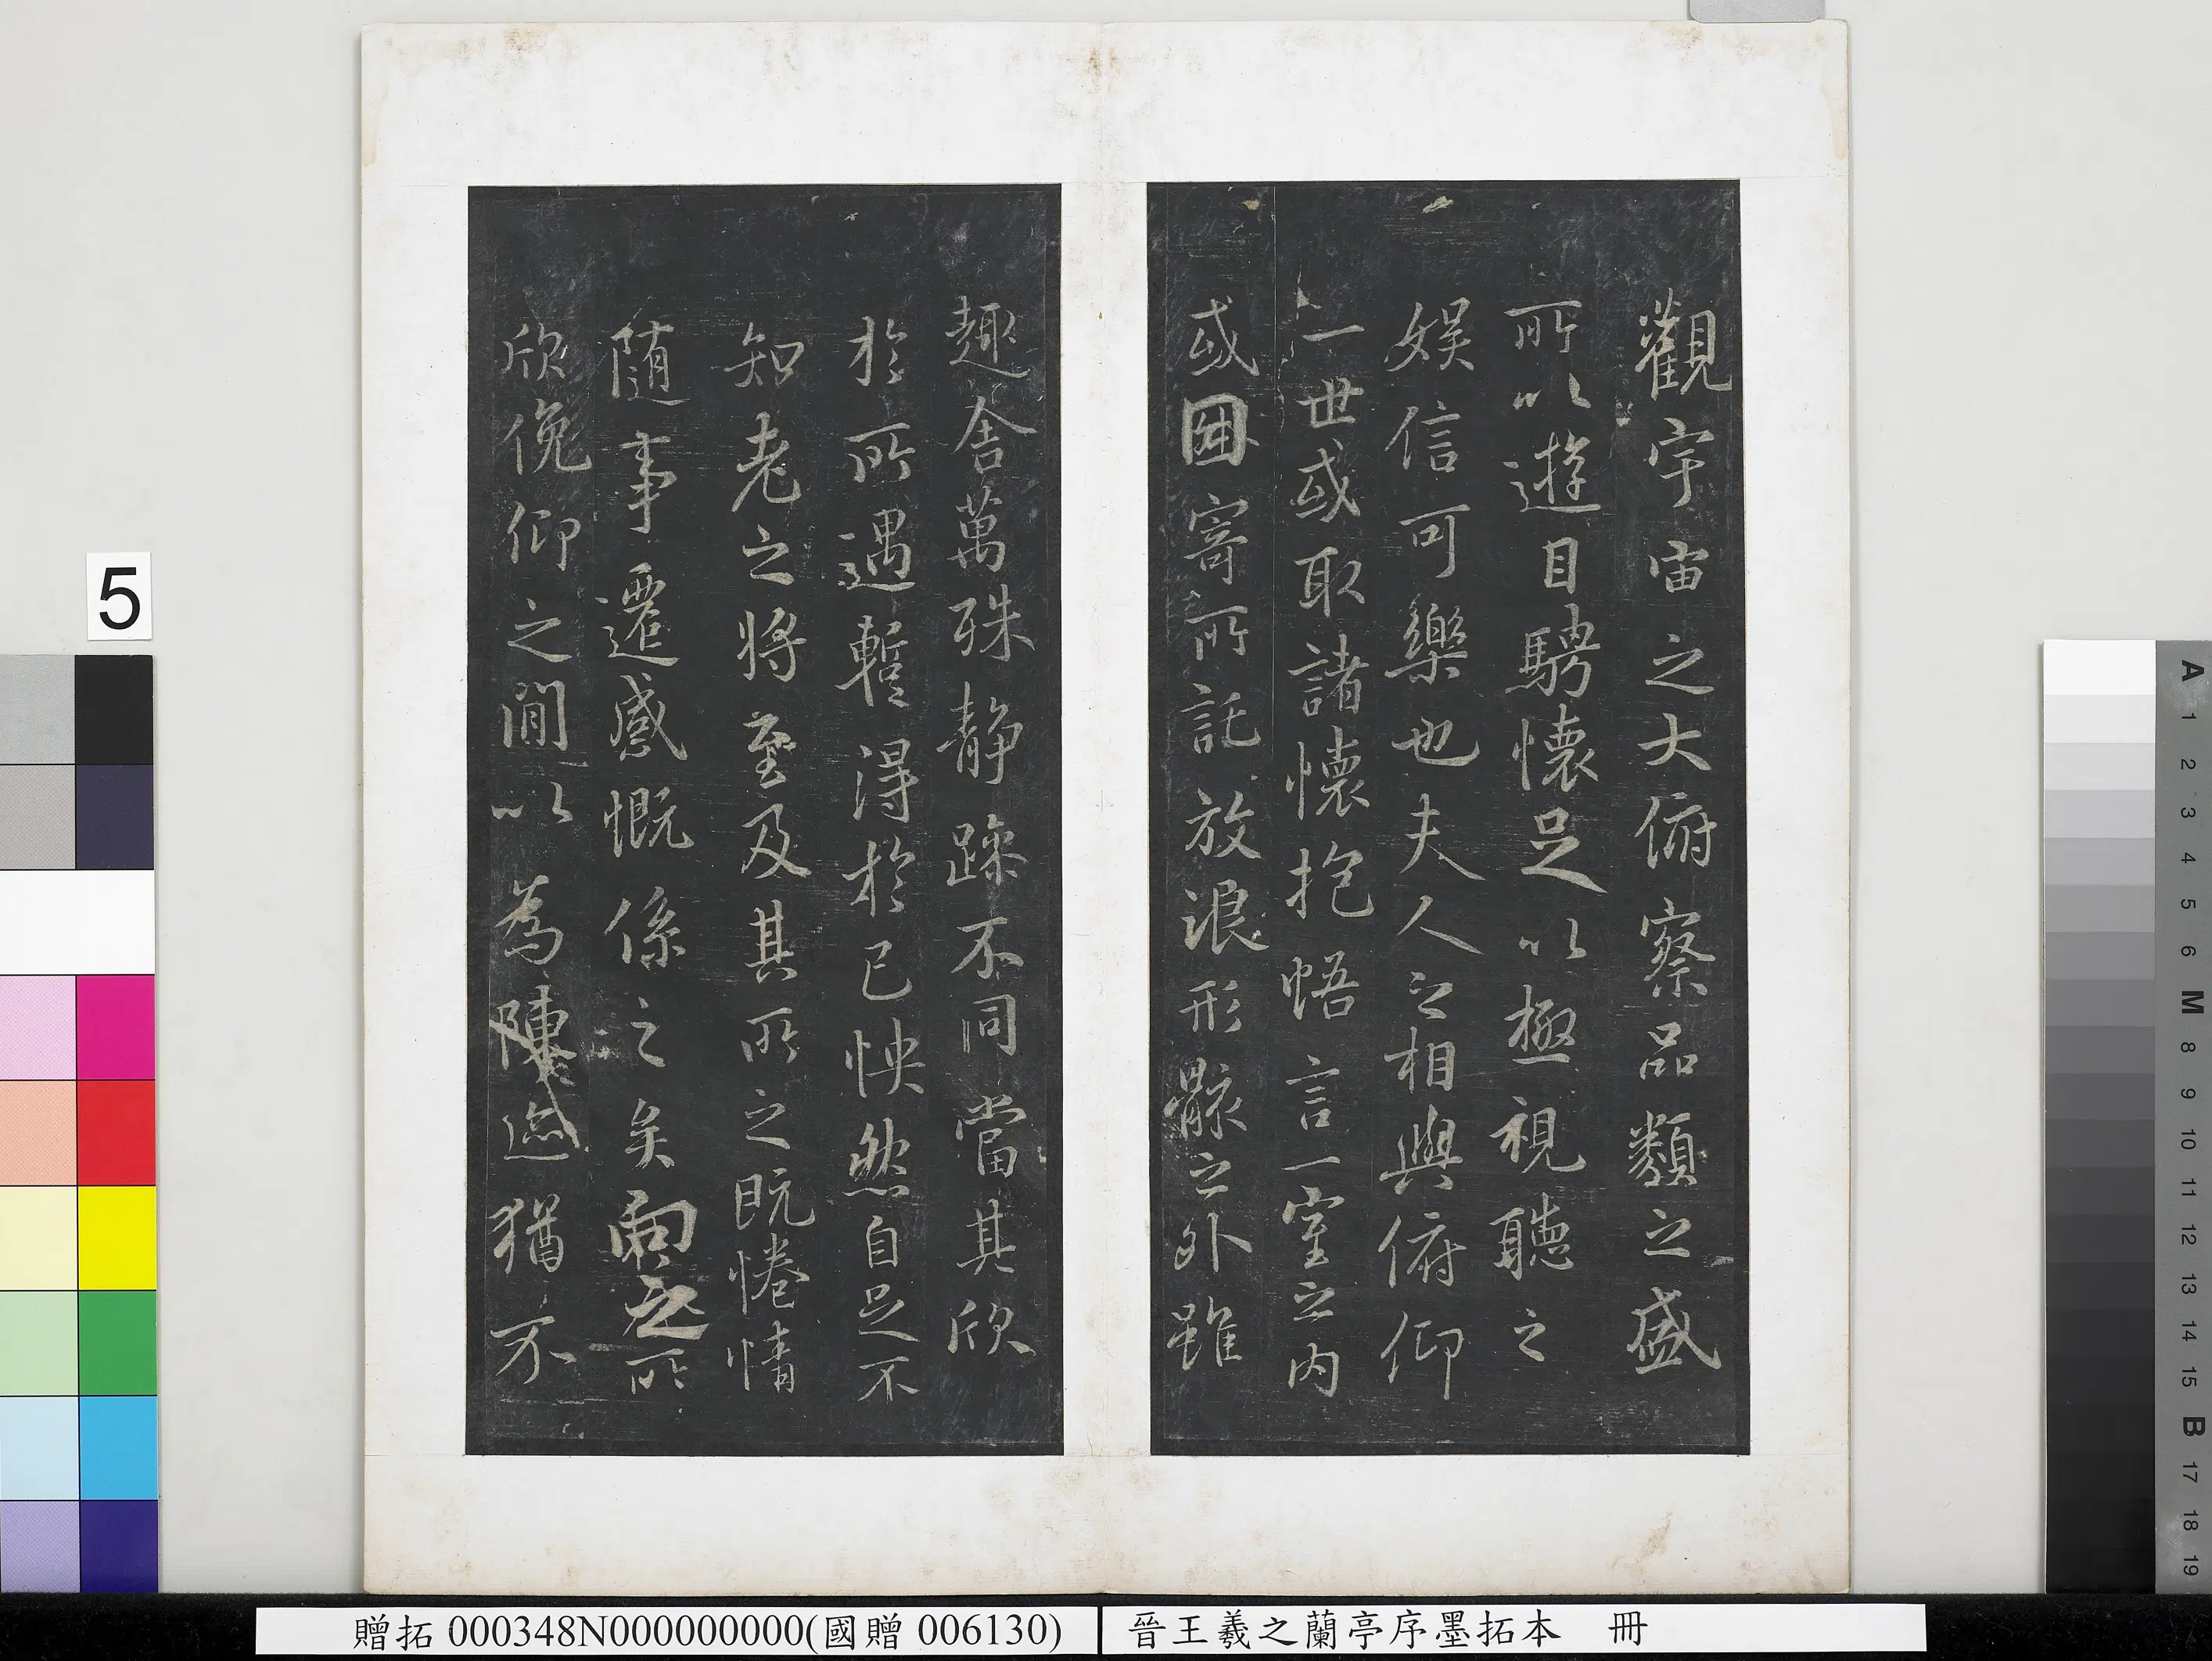 觀宇宙之大俯察品類之盛
所以遊目騁懷足以極視聽之
娛信可樂也夫人之相與俯仰
一世或取諸懷抱悟言一室之內
或因寄所託放浪形骸之外雖
趣舍萬殊静躁不同當其欣
於所遇暫得於己怏然自足不
知老之將至及其所之既惓情
随事遷感慨係之矣向之所
欣俛仰之閒以為陳迹猶不
5
A
1
2
3
4
5
6
M
8
9
10
11
12
13
14
15
B
17
18
19
贈拓 000348N000000000(國贈 006130)
晉王羲之蘭亭序墨拓本 冊